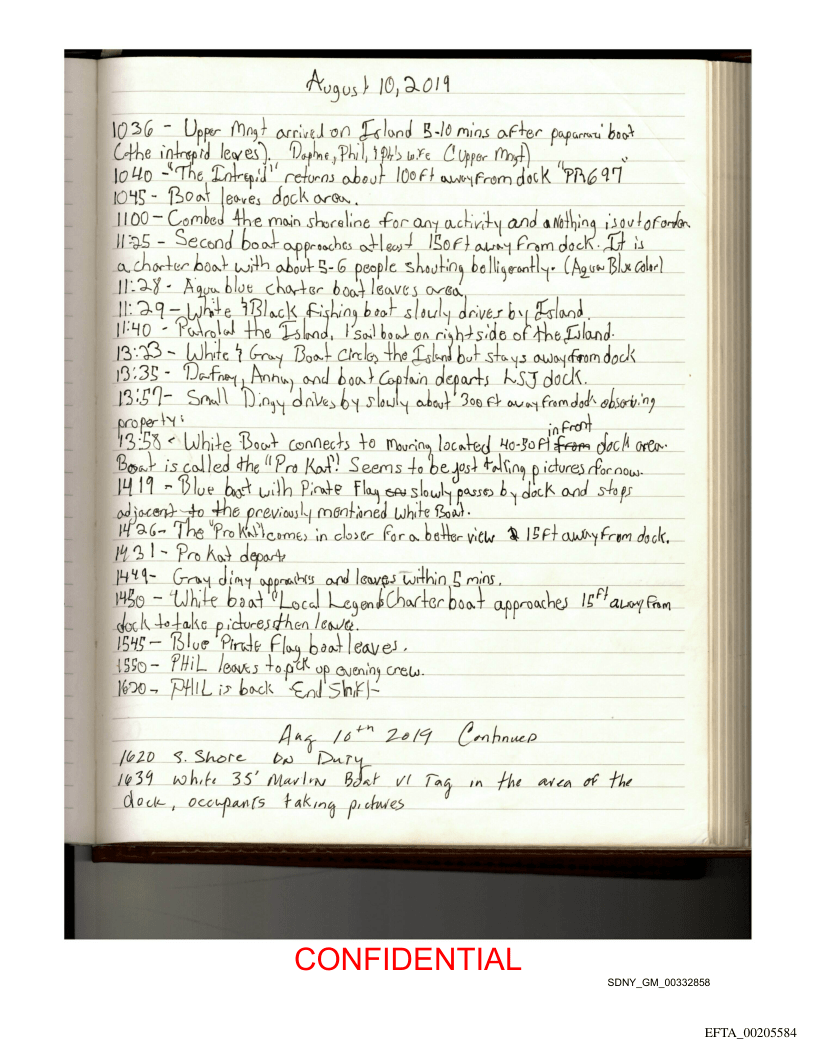 August 10, 2019
1036 - Upper Mngt arrived on Island 5-10 mins after paparrazi boat
(the intrepid leaves). Daphne, Phil, & Ph's wife (Upper Mngt)
1040 - "The Intrepid" returns about 100ft away from dock "PR697"
1045 - Boat leaves dock area.
1100 - Combed the main shoreline for any activity and nothing is out of order.
11:25 - Second boat approaches atleast 150ft away from dock. It is
a charter boat with about 5-6 people shouting belligerantly. (Aqua Blue Color)
11:28 - Aqua blue charter boat leaves area
11:29 - White & Black fishing boat slowly drives by Island.
11:40 - Patrolal the Island, 1 sail boat on right side of the Island.
13:23 - White & Gray Boat Circles the Island but stays away from dock
13:35 - Dafney, Annuy, and boat Captain departs LSJ dock.
13:57 - Small Dingy drives by slowly about 300ft away from dock observing
property.
13:58 - White Boat connects to mouring located 40-50ft in front from dock area.
Boat is called the "Pro Kat". Seems to be jost taking pictures for now.
1419 - Blue boat with Pirate Flag on slowly passes by dock and stops
adjacent to the previously mentioned White Boat.
1426 - The "Pro Kat" comes in closer for a better view 15ft away from dock.
1431 - Pro Kat departs
1449 - Gray dingy approaches and leaves within 5 mins.
1450 - White boat "Local Legend" Charter boat approaches 15ft away from
dock to take pictures then leaves.
1545 - Blue Pirate Flag boat leaves.
1550 - PHIL leaves to pick up evening crew.
1620 - PHIL is back -End Shift-
Aug 10th 2019 Continued
1620 S. Shore on Duty
1639 White 35' Marlin Boat VI Tag in the area of the
dock, occupants taking pictures
CONFIDENTIAL
SDNY_GM_00332858
EFTA_00205584